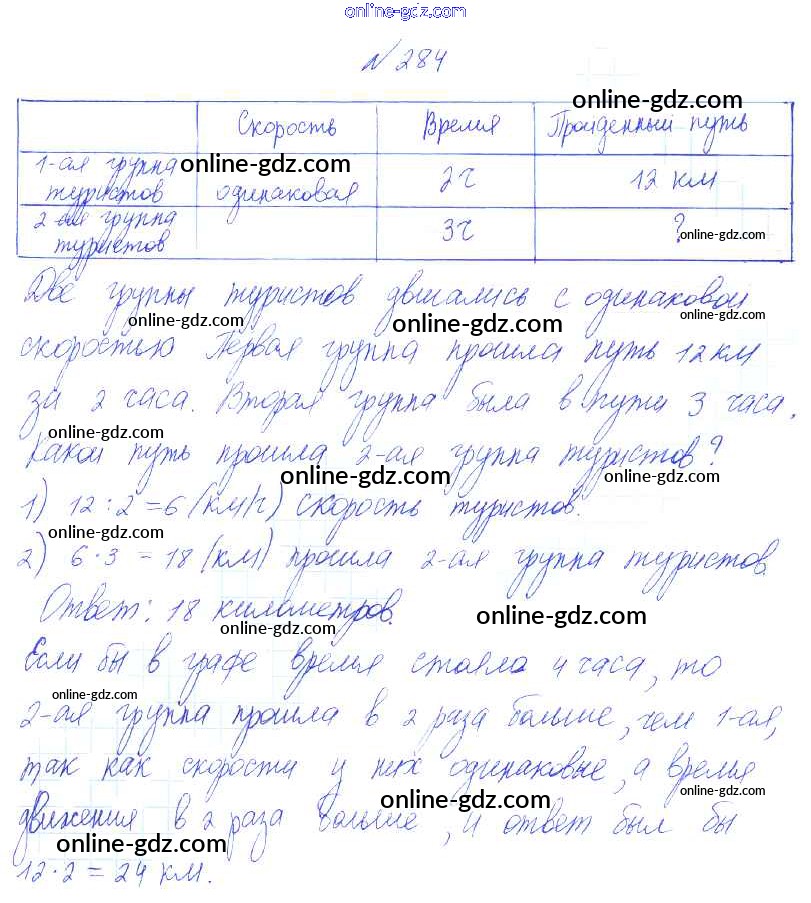 online-gdz.com
№ 284
online-gdz.com
Скорость Время Пройденный путь
1-ая группа туристов одинаковая 2ч 12 км
online-gdz.com
2-ая группа туристов 3ч ?
online-gdz.com
Две группы туристов двигались с одинаковой
online-gdz.com online-gdz.com online-gdz.com
скоростью Первая группа прошла путь 12 км
за 2 часа. Вторая группа была в пути 3 часа.
online-gdz.com online-gdz.com
Какой путь прошла 2-ая группа туристов?
online-gdz.com online-gdz.com
1) 12 : 2 = 6 (км/ч) скорость туристов.
online-gdz.com online-gdz.com
2) 6 · 3 = 18 (км) прошла 2-ая группа туристов
Ответ: 18 километров.
online-gdz.com online-gdz.com
Если бы в графе время стояло 4 часа, то
online-gdz.com
2-ая группа прошла в 2 раза больше, чем 1-ая,
так как скорости у них одинаковые, а время
online-gdz.com online-gdz.com
движения в 2 раза больше, и ответ был бы
online-gdz.com online-gdz.com
12 · 2 = 24 км.